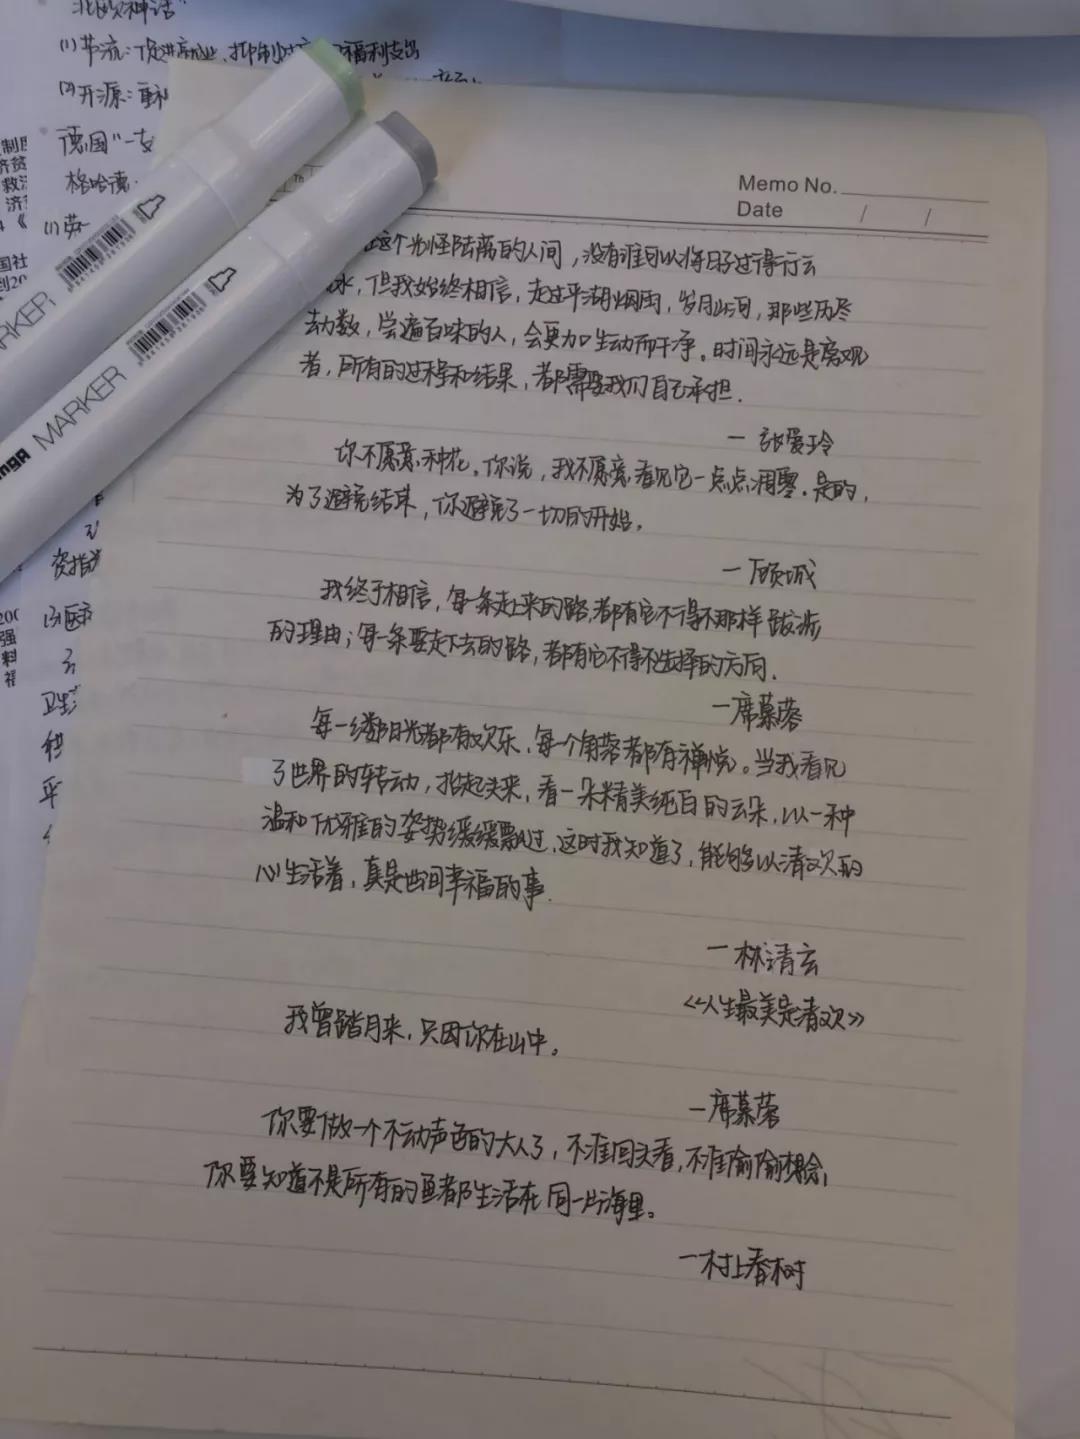 北欧神话"
(1)节流:促进就业、抑制 福利支出
(2)开源:重
德国"一
格哈德
(1)英
制度
济贫
救济
国社
到20
MARKER
MARKER
资指
卫生
平
200
强
料
福
Memo No.
Date / /
这个光怪陆离的人间，没有谁可以将日子过得行云
水，但我始终相信，走过平湖烟雨，岁月山河，那些历尽
劫数，尝遍百味的人，会更加生动而干净。时间永远是旁观
者，所有的过程和结果，都需要我们自己承担.
一张爱玲
你不愿意种花。你说，我不愿意看见它一点点凋零。是的，
为了避免结束，你避免了一切的开始。
一顾城
我终于相信，每一条走上来的路，都有它不得不那样跋涉
的理由；每一条要走下去的路，都有它不得不选择的方向.
一席慕蓉
每一缕阳光都有欢乐，每一个角落都有禅悦。当我看见
了世界的转动，抬起头来，看一朵精美纯白的云朵，以一种
温和优雅的姿势缓缓飘过，这时我知道了，能够以清欢的
心生活着，真是世间幸福的事.
一林清玄
《人生最美是清欢》
我曾踏月来，只因你在山中。
一席慕蓉
你要做一个不动声色的大人了，不准回头看，不准偷偷想念，
你要知道不是所有的鱼都生活在同一片海里。
一村上春树